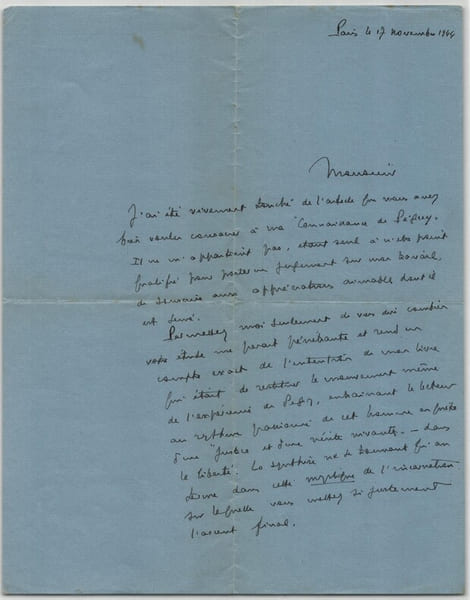 Paris le 17 novembre 1944
Monsieur
J'ai été vivement touché de l'article que vous avez
bien voulu consacrer à ma "Connaissance de Péguy".
Il ne m'appartient pas, étant seul à n'être point
qualifié pour porter un jugement sur mon travail,
de souscrire aux appréciations aimables dont il
est
Permettez moi seulement de vous dire combien
votre étude me paraît pénétrante et rend un
compte exact de l'intention de mon livre
qui était de restituer le mouvement même
de l'expérience de Péguy, entraînant le lecteur
au rythme passionné de cet homme en quête
d'une "justice et d'une vérité vivante" – dans
la liberté. La synthèse ne se trouvant qu'au
terme dans cette mystique de l'incarnation
sur laquelle vous mettez si justement
l'accent final.